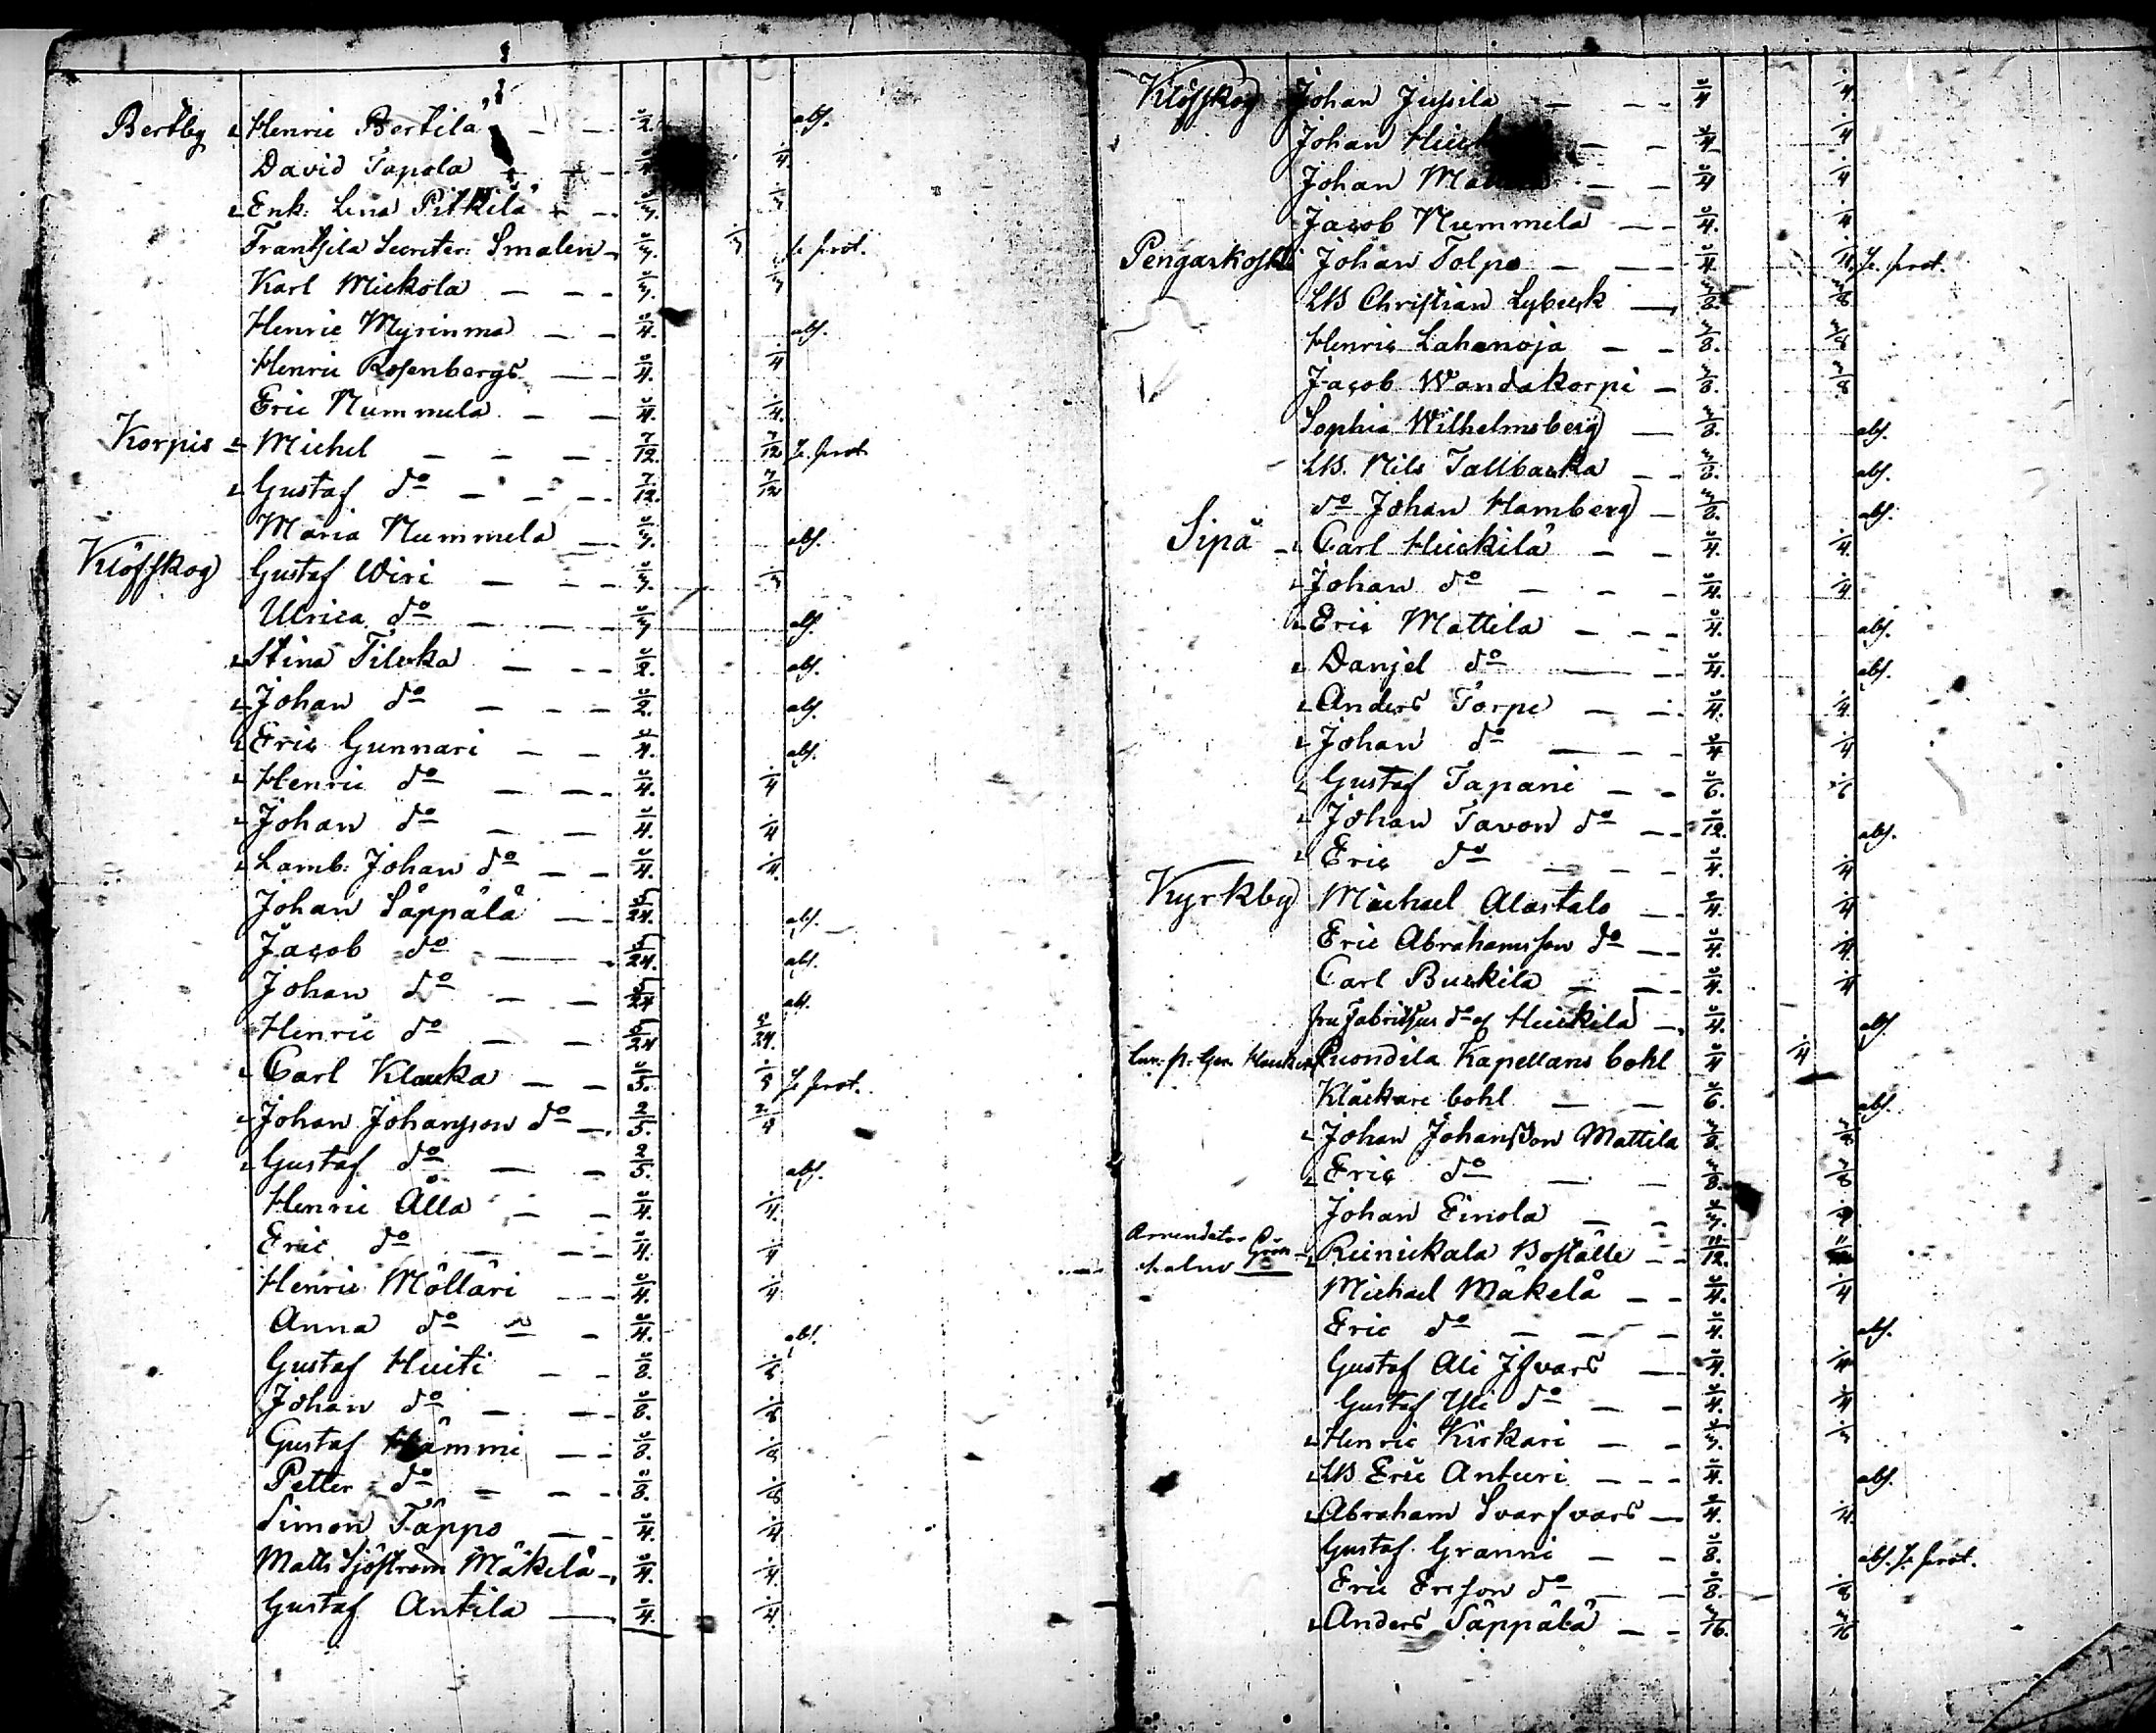 Bertby Henric Bertilä 1/2. abs.
David Tapola 1/4.
Enk: Lena Pitkilä 1/3. 1/3
Frantsila Secreter: Smalen 1/3. 1/3 Se prot.
Karl Mickola 1/3. 1/3
Henric Myrinma 1/4. abs.
Henric Rosenbergs 1/4. 1/4
Eric Nummela 1/4. 1/4.
Korpis Michel 7/12. 7/12 Se prot.
Gustaf do 7/12. 7/12
Maria Nummela 1/3. abs.
Klöfskog Gustaf Wiri 1/3. 1/3
Ulrica do 1/3 abs.
Stina Tilcka 1/2. abs.
Johan do 1/2. abs.
Eric Gunnari 1/4. abs.
Henric do 1/4. 1/4
Johan do 1/4. 1/4
Lamb: Johan do 1/4. 1/4.
Johan Säppälä 5/24. abs.
Jacob do 5/24. abs.
Johan do 5/24 abs.
Henric do 5/24 5/24.
Carl Klauka 1/5. 1/5 Se prot.
Johan Johansson do 2/5. 2/5
Gustaf do 2/5. abs.
Henric Ålla 1/4. 1/4.
Eric do 1/4. 1/4
Henric Mölläri 1/4. 1/4
Anna do 1/4. abs.
Gustaf Huiti 1/8. 1/8
Johan do 1/8. 1/8
Gustaf Hämmi 1/8. 1/8
Petter do 1/8. 1/8
Simon Täppo 1/4. 1/4
Matts Sjöström Mäkelä 1/4. 1/4.
Gustaf Antila 1/4. 1/4
Klöfskog Johan Jussila 1/4 1/4.
Johan 1/4 1/4
Johan 1/4 1/4
Jacob Nummela 1/4. 1/4
Pengarkoski Johan Tolpo 1/4. 1/4. Se prot.
LB Christian Lybeck 3/8. 3/8
Henric Lahanoja 3/8. 3/8
Jacob Wandakorpi 3/8. 3/8
Sophia Wilhelmsberg 3/8. abs.
LB. Nils Tallbacka 3/8. abs.
do Johan Hamberg 3/8. abs.
Sipä Carl Huckila 1/4. 1/4.
Johan do 1/4. 1/4.
Eric Mattila 1/4. abs.
Danjel do 1/4. abs.
Anders Torpe 1/4. 1/4.
Johan do 1/4 1/4
Gustaf Tapani 1/6. 1/6
Johan Tavon do 1/12. abs.
Eric do 1/4. 1/4
Kyrkby Michael Alastalo 1/4. 1/4
Eric Abrahamsson do 1/4. 1/4.
Carl Buckila 1/4. 1/4
do of Huckila 1/4. abs.
Kapellans bohl 1/4 1/4
Klåckare bohl 1/6. abs.
Johan Johansson Mattila 3/8. 3/8.
Eric do 3/8. 3/8
Johan Einola 1/3.
Arrendator Reinickala Boställe 11/12. 11
Michael Mäkelä 1/4. 1/4
Eric do 1/4. abs.
Gustaf Ali Jfvars 1/4. 1/4
Gustaf Yli do 1/4. 1/4
Henric Kirkari 1/3. 1/3
LB Eric Anturi 1/4. abs.
Abraham Svarfvars 1/4. 1/4.
Gustaf Granni 1/8. abs. Se prot.
Eric Ersson do 1/8. 1/8
Anders Säppälä 3/16. 3/16